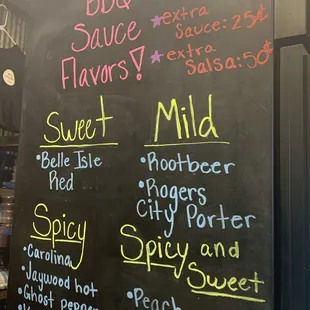 BBQ
Sauce
Flavors!
*extra
Sauce: 25¢
*extra
Salsa: 50¢
Sweet
•Belle Isle
Red
Mild
•Rootbeer
•Rogers
City Porter
Spicy
•Carolina
•Jaywood hot
•Ghost pepper
Spicy and
Sweet
•Peach